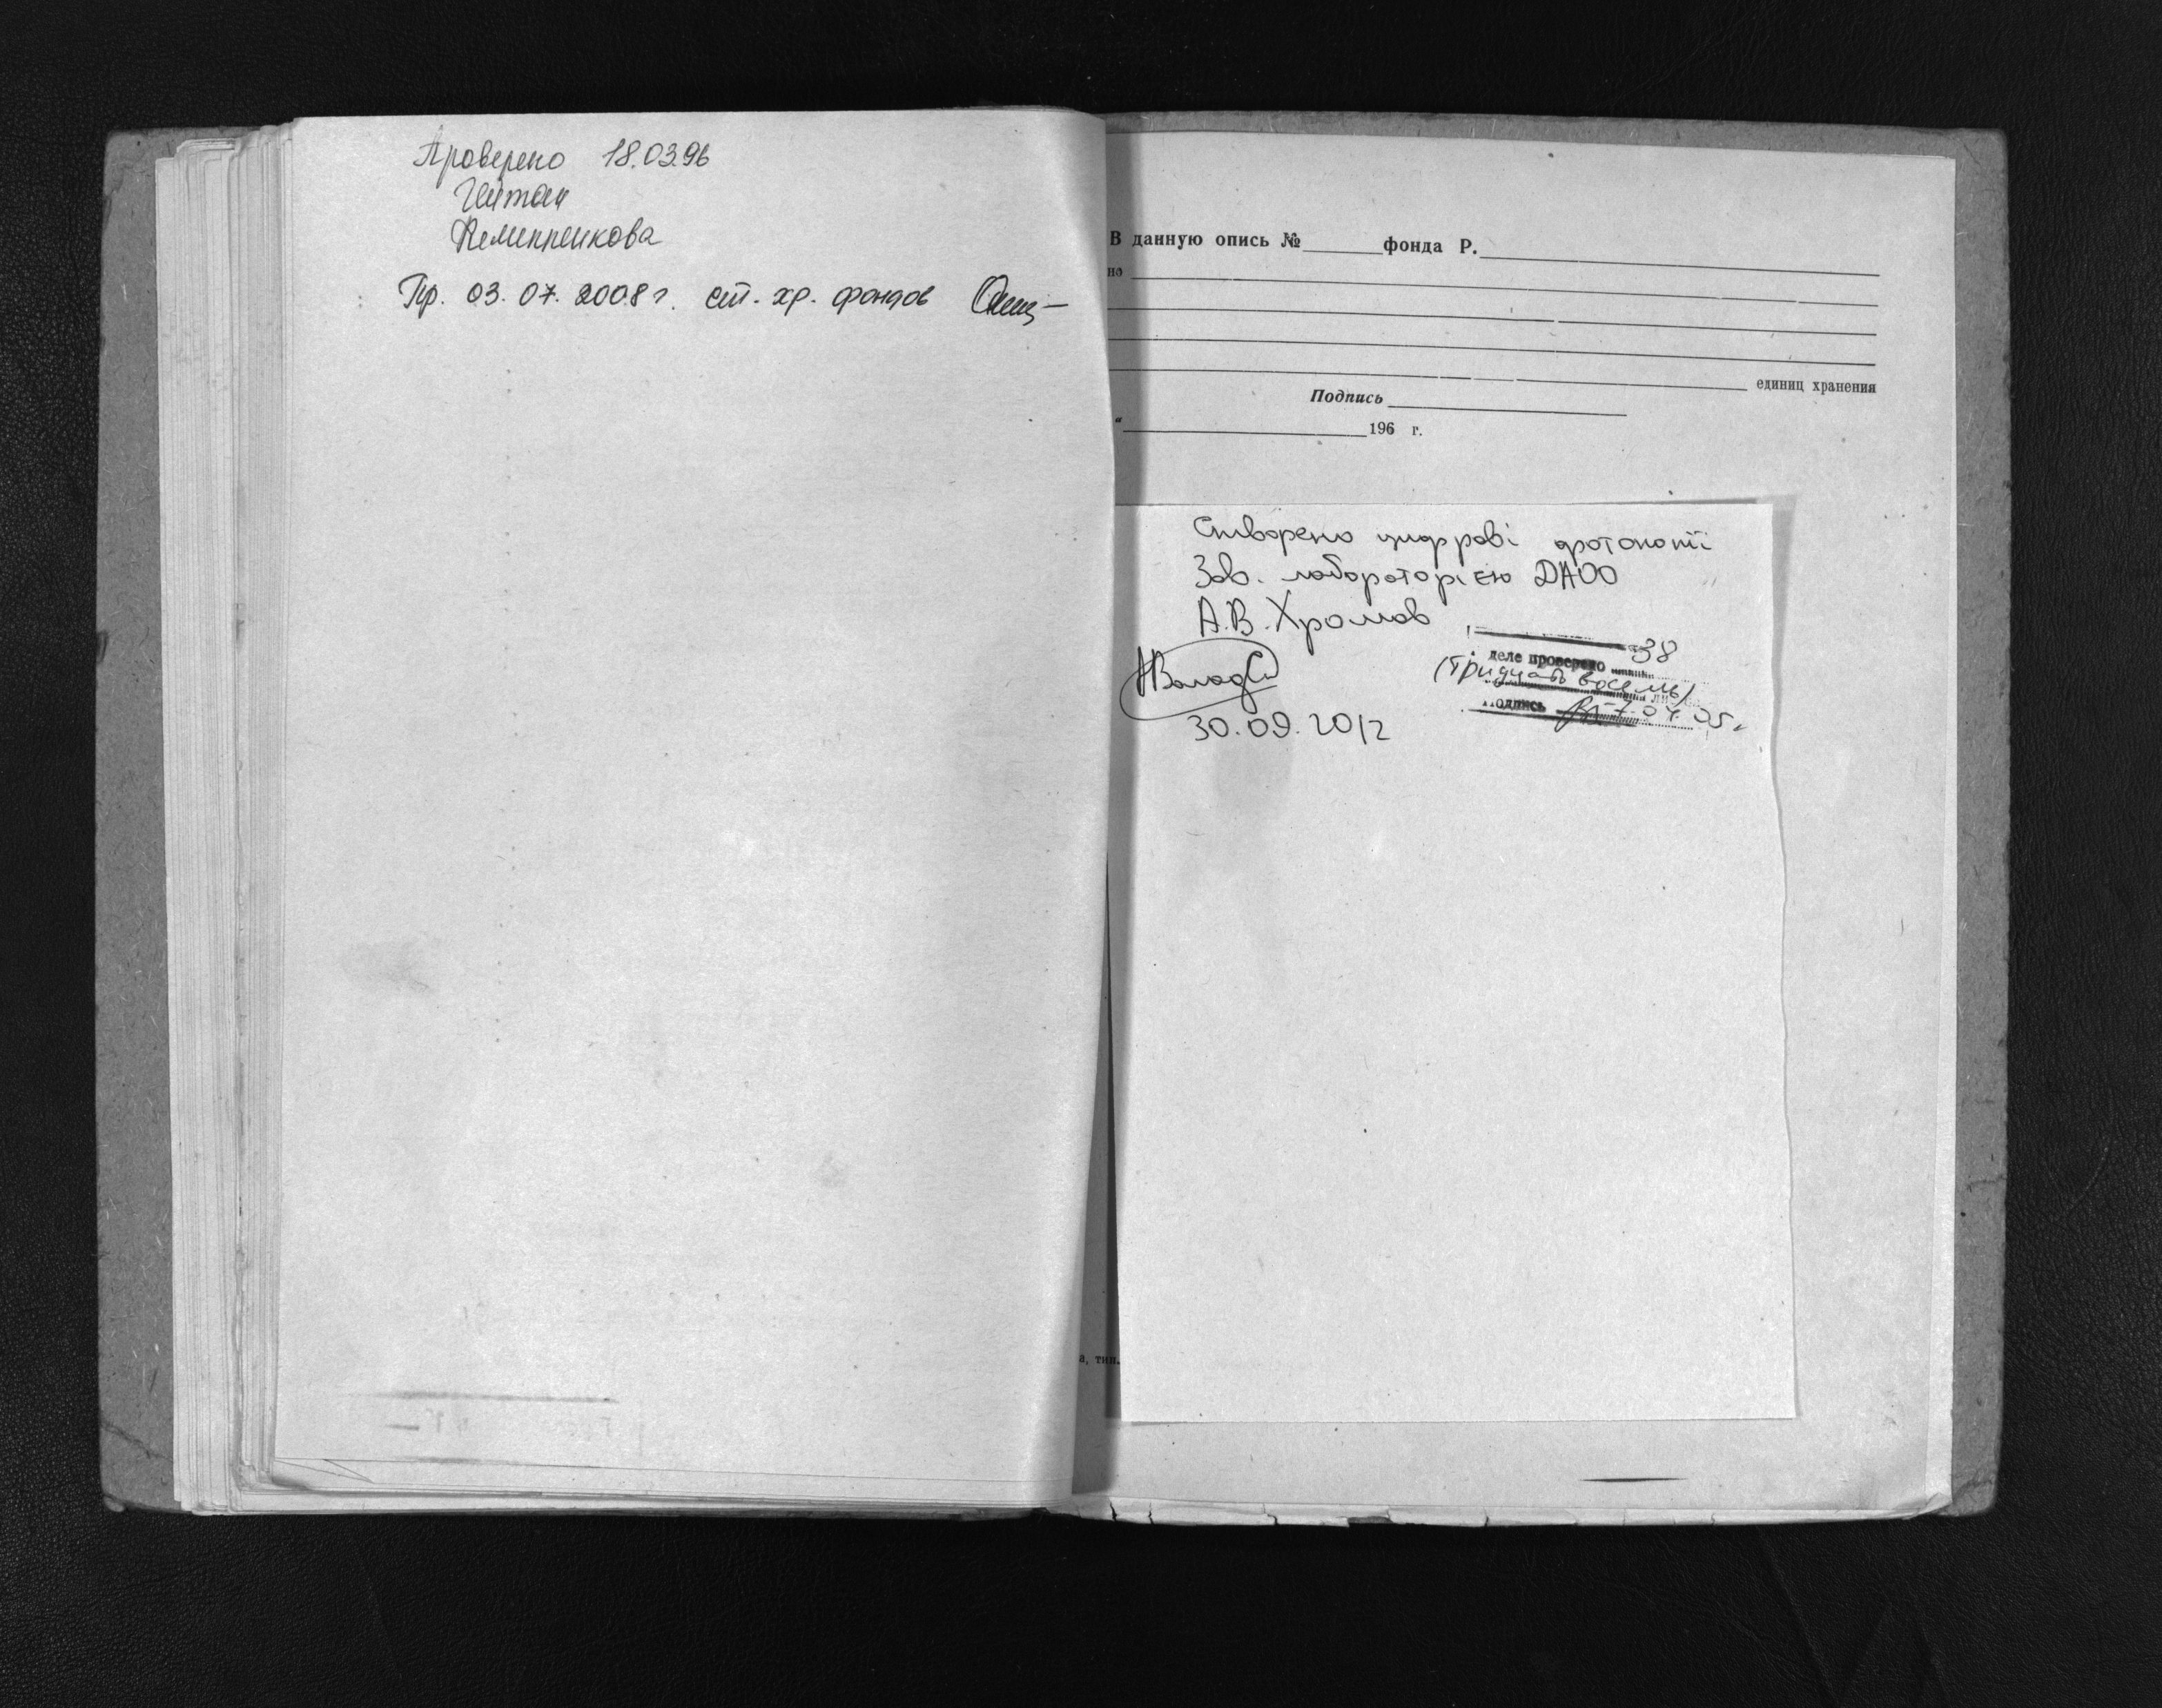 Проверено 18.03.96
Пр. 03.07.2008 г. ст. хр. фондов
В данную опись № фонда Р.
но
единиц хранения
Подпись
196 г.
Створено цифрові фотокопії
Зав. лабораторією ДАОО
А.В. Хромов
30.09.2012
деле проверено 38
(тридцать восемь)
Подпись 04.05г.
а, тип.